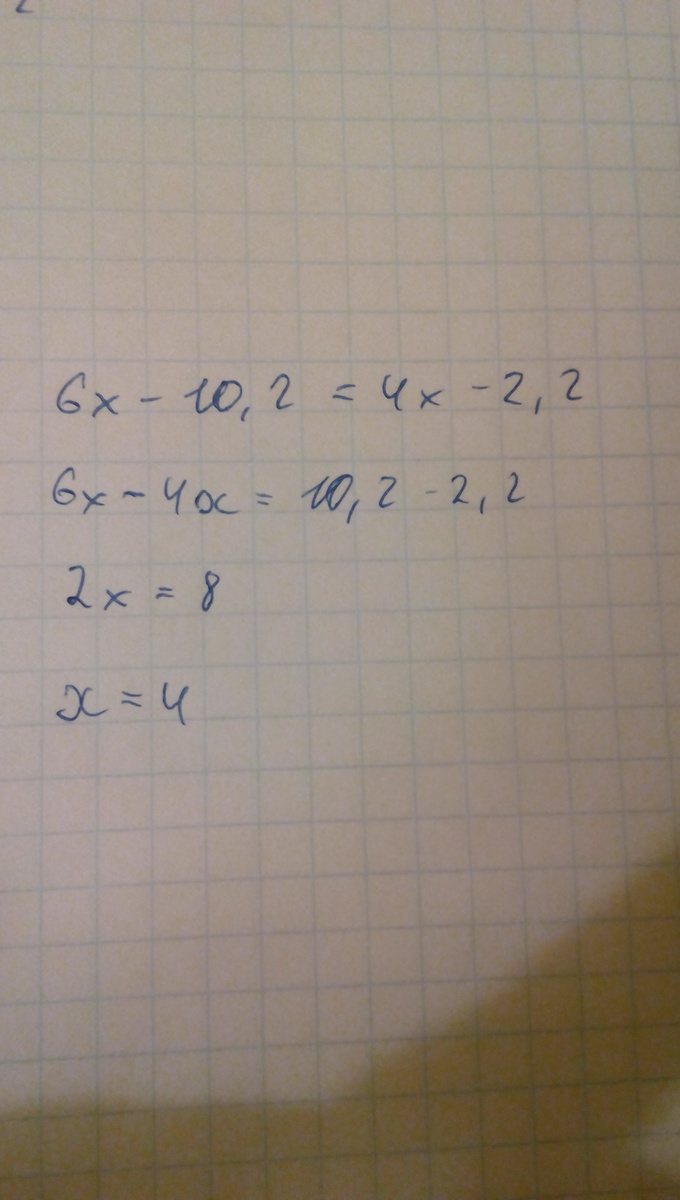 6x - 10,2 = 4x - 2,2
6x - 4x = 10,2 - 2,2
2x = 8
x = 4